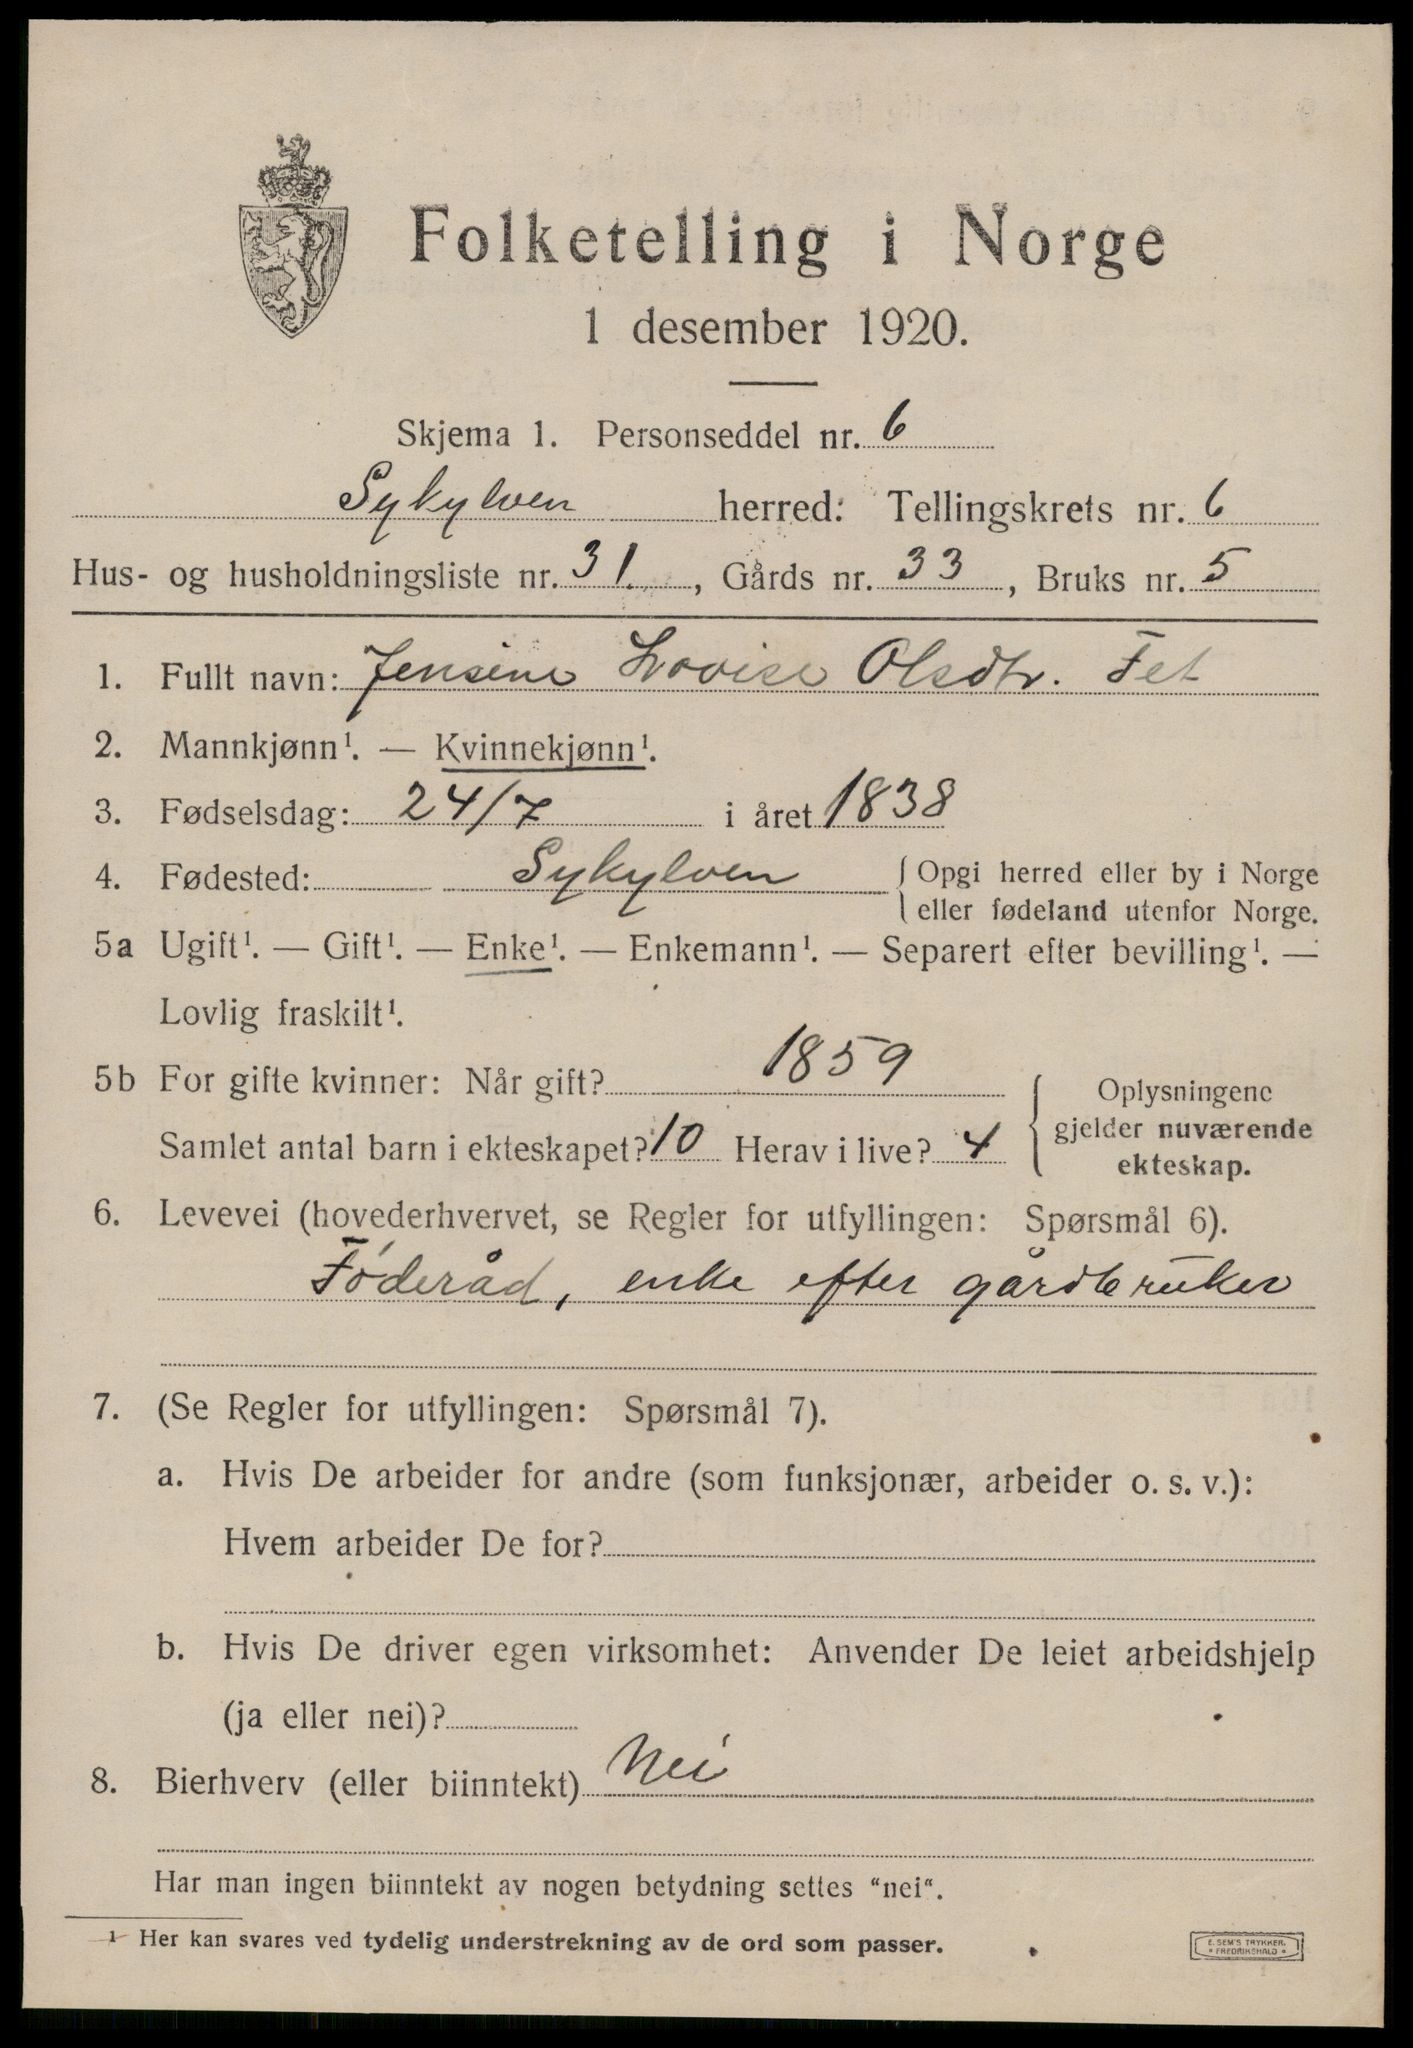 Folketelling i Norge
1 desember 1920.
Skjema 1. Personseddel nr. 6
Sykylven herred: Tellingskrets nr. 6
Hus- og husholdningsliste nr. 31., Gårds nr. 33, Bruks nr. 5
1. Fullt navn: Jensine Lovise Olsdtr. Fet
2. Mannkjønn¹. — Kvinnekjønn¹.
3. Fødselsdag: 24/7 i året 1838
4. Fødested: Sykylven { Opgi herred eller by i Norge
eller fødeland utenfor Norge.
5a Ugift¹. — Gift¹. — Enke¹. — Enkemann¹. — Separert efter bevilling¹. —
Lovlig fraskilt¹.
5b For gifte kvinner: Når gift? 1859
Samlet antal barn i ekteskapet? 10 Herav i live? 4
Oplysningene
gjelder nuværende
ekteskap.
6. Levevei (hovederhvervet, se Regler for utfyllingen: Spørsmål 6).
Føderåd, enke efter gårdbruker
7. (Se Regler for utfyllingen: Spørsmål 7).
a. Hvis De arbeider for andre (som funksjonær, arbeider o. s. v.):
Hvem arbeider De for?
b. Hvis De driver egen virksomhet: Anvender De leiet arbeidshjelp
(ja eller nei)?
8. Bierhverv (eller biinntekt) Nei
Har man ingen biinntekt av nogen betydning settes “nei“.
¹ Her kan svares ved tydelig understrekning av de ord som passer.
E. SEM'S TRYKKER.
* FREDRIKSHALD *